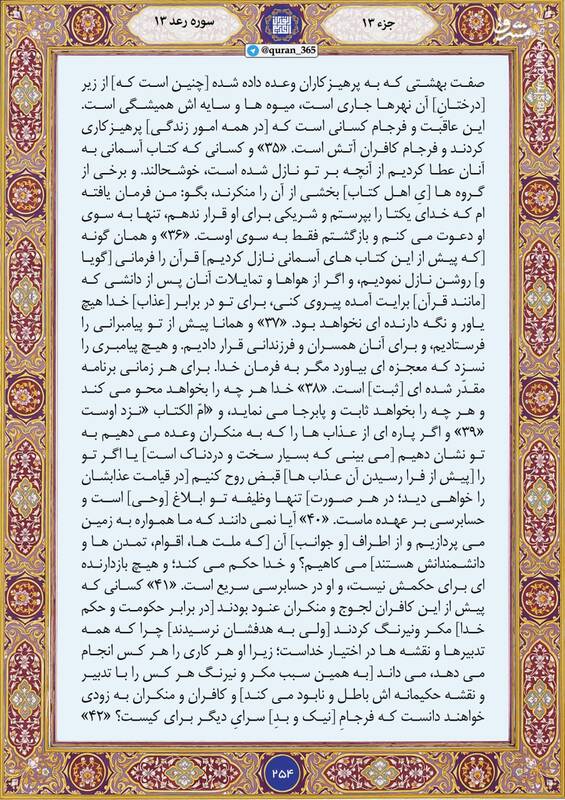 جزء ۱۳
سوره رعد ۱۳
@quran_365
مشرق
mashreghnews.ir
صفت بهشتی که به پرهیزکاران وعده داده شده [چنین است که] از زیر
[درختانِ] آن نهرها جاری است، میوه ها و سایه اش همیشگی است.
این عاقبت و فرجام کسانی است که [در همه امور زندگی] پرهیزکاری
کردند و فرجام کافران آتش است. «۳۵» و کسانی که کتاب آسمانی به
آنان عطا کردیم از آنچه بر تو نازل شده است، خوشحالند. و برخی از
گروه ها [یِ اهل کتاب] بخشی از آن را منکرند، بگو: من فرمان یافته
ام که خدای یکتا را بپرستم و شریکی برای او قرار ندهم، تنها به سوی
او دعوت می کنم و بازگشتم فقط به سوی اوست. «۳۶» و همان گونه
[که پیش از این کتاب های آسمانی نازل کردیم] قرآن را فرمانی [گویا
و] روشن نازل نمودیم، و اگر از هواها و تمایلات آنان پس از دانشی که
[مانند قرآن] برایت آمده پیروی کنی، برای تو در برابر [عذاب] خدا هیچ
یاور و نگه دارنده ای نخواهد بود. «۳۷» و همانا پیش از تو پیامبرانی را
فرستادیم، و برای آنان همسران و فرزندانی قرار دادیم. و هیچ پیامبری را
نسزد که معجزه ای بیاورد مگر به فرمان خدا. برای هر زمانی برنامه
مقدّر شده ای [ثبت] است. «۳۸» خدا هر چه را بخواهد محو می کند
و هر چه را بخواهد ثابت و پابرجا می نماید، و «امّ الکتاب «نزد اوست
«۳۹» و اگر پاره ای از عذاب ها را که به منکران وعده می دهیم به
تو نشان دهیم [می بینی که بسیار سخت و دردناک است] یا اگر تو
را [پیش از فرا رسیدن آن عذاب ها] قبض روح کنیم [در قیامت عذابشان
را خواهی دید؛ در هر صورت] تنها وظیفه تو ابلاغ [وحی] است و
حسابرسی بر عهده ماست. «۴۰» آیا نمی دانند که ما همواره به زمین
می پردازیم و از اطراف [و جوانب] آن [که ملت ها، اقوام، تمدن ها و
دانشمندانش هستند] می کاهیم؟ و خدا حکم می کند؛ و هیچ بازدارنده
ای برای حکمش نیست، و او در حسابرسی سریع است. «۴۱» کسانی که
پیش از این کافران لجوج و منکران عنود بودند [در برابر حکومت و حکم
خدا] مکر ونیرنگ کردند [ولی به هدفشان نرسیدند] چرا که همه
تدبیرها و نقشه ها در اختیار خداست؛ زیرا او هر کاری را هر کس انجام
می دهد، می داند [به همین سبب مکر و نیرنگ هر کس را با تدبیر
و نقشه حکیمانه اش باطل و نابود می کند] و کافران و منکران به زودی
خواهند دانست که فرجامِ [نیک و بدِ] سرایِ دیگر برای کیست؟ «۴۲»
۲۵۴